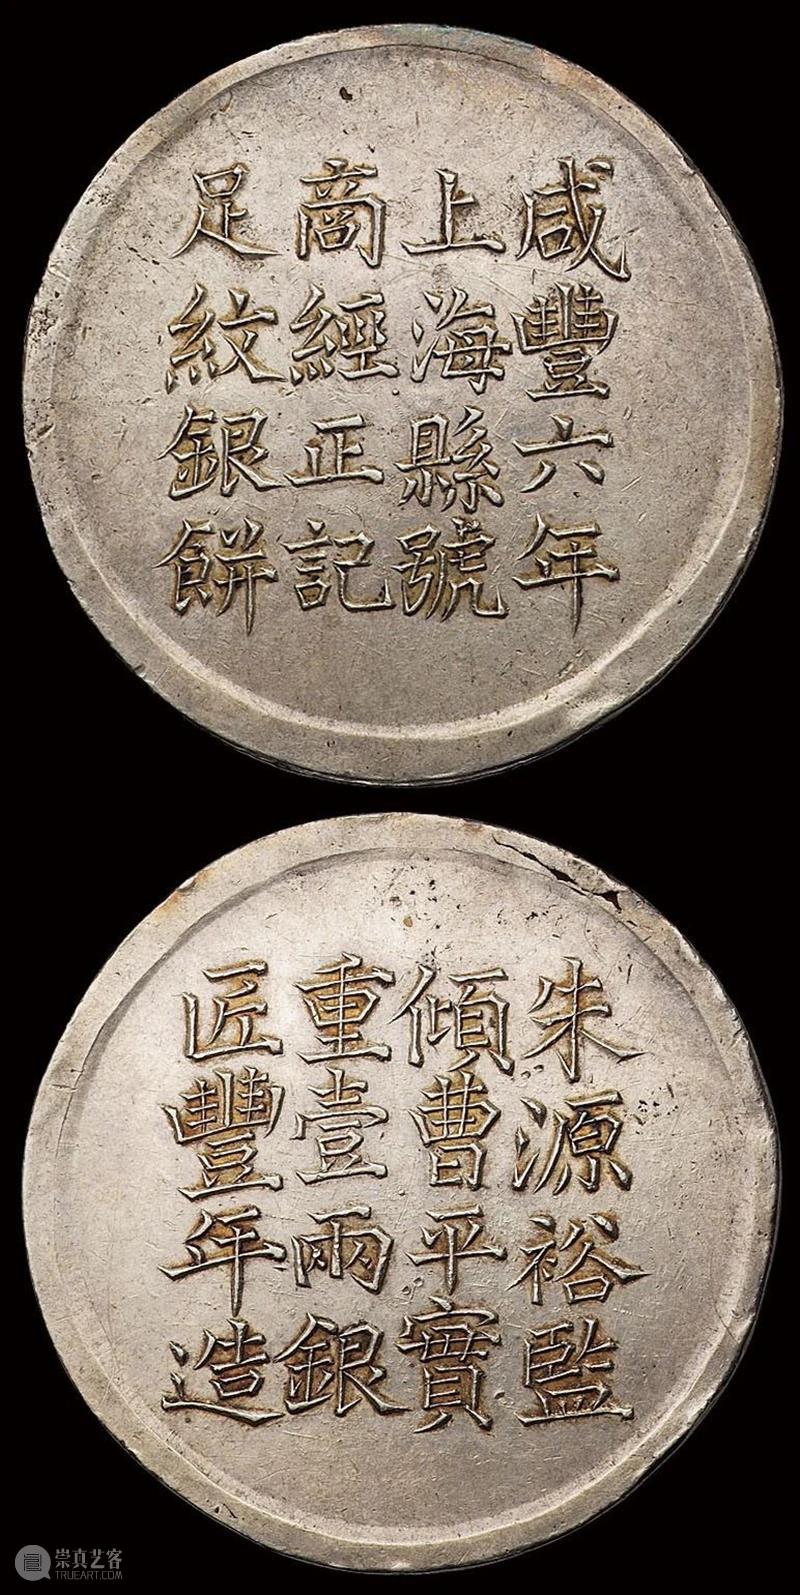 咸豐六年
上海縣號
商經正記
足紋銀餅
朱源裕監
傾曹平實
重壹兩銀
匠豐年造
崇真艺客
TRUEART.COM